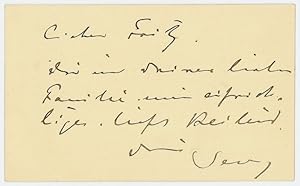 Lieber Fritz,
dir u deiner lieben
Familie mein aufrich-
tiges, tiefes Beileid.
dein